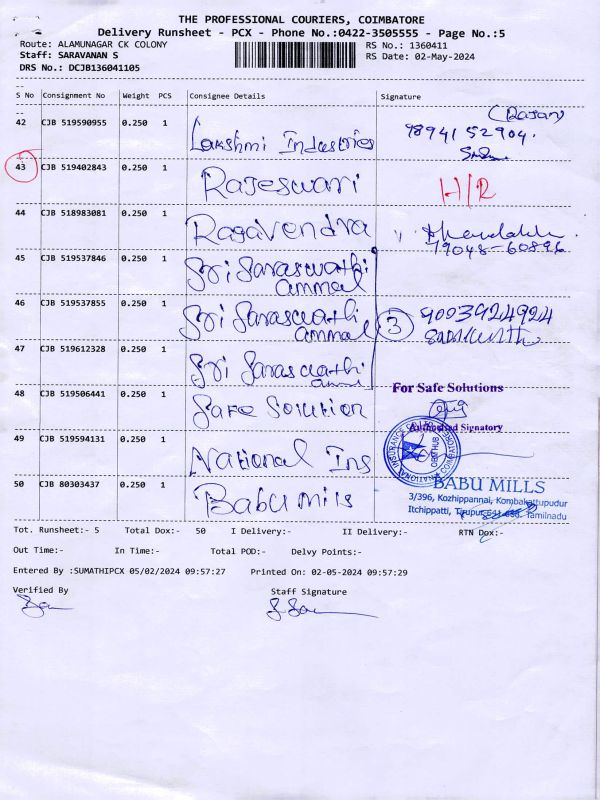 THE PROFESSIONAL COURIERS, COIMBATORE
Delivery Runsheet - PCX - Phone No.:0422-3505555 - Page No.:5
Route: ALAMUNAGAR CK COLONY
RS No.: 1360411
Staff: SARAVANAN S
RS Date: 02-May-2024
DRS No.: DCJB136041105
S No Consignment No Weight PCS Consignee Details Signature
42 CJB 519590955 0.250 1 Lakshmi Industries (Rajan)
98941 52904.
43 CJB 519402843 0.250 1 Rajeswari H/R
44 CJB 518983081 0.250 1 Ragavendra
79048-60896
45 CJB 519537846 0.250 1 Sri Saraswathi
ammal
46 CJB 519537855 0.250 1 Sri Saraswathi
ammal
3 9003924924
47 CJB 519612328 0.250 1 Sri Saraswathi
For Safe Solutions
48 CJB 519506441 0.250 1 Safe Solution
Authorised Signatory
49 CJB 519594131 0.250 1 National Ins
50 CJB 80303437 0.250 1 Babu mils
BABU MILLS
3/396, Kozhippannai, Kombakattupudur
Itchippatti, Tirupur Tamilnadu
Tot. Runsheet:- 5 Total Dox:- 50 I Delivery:- II Delivery:- RTN Dox:-
Out Time:- In Time:- Total POD:- Delvy Points:-
Entered By :SUMATHIPCX 05/02/2024 09:57:27 Printed On: 02-05-2024 09:57:29
Verified By Staff Signature